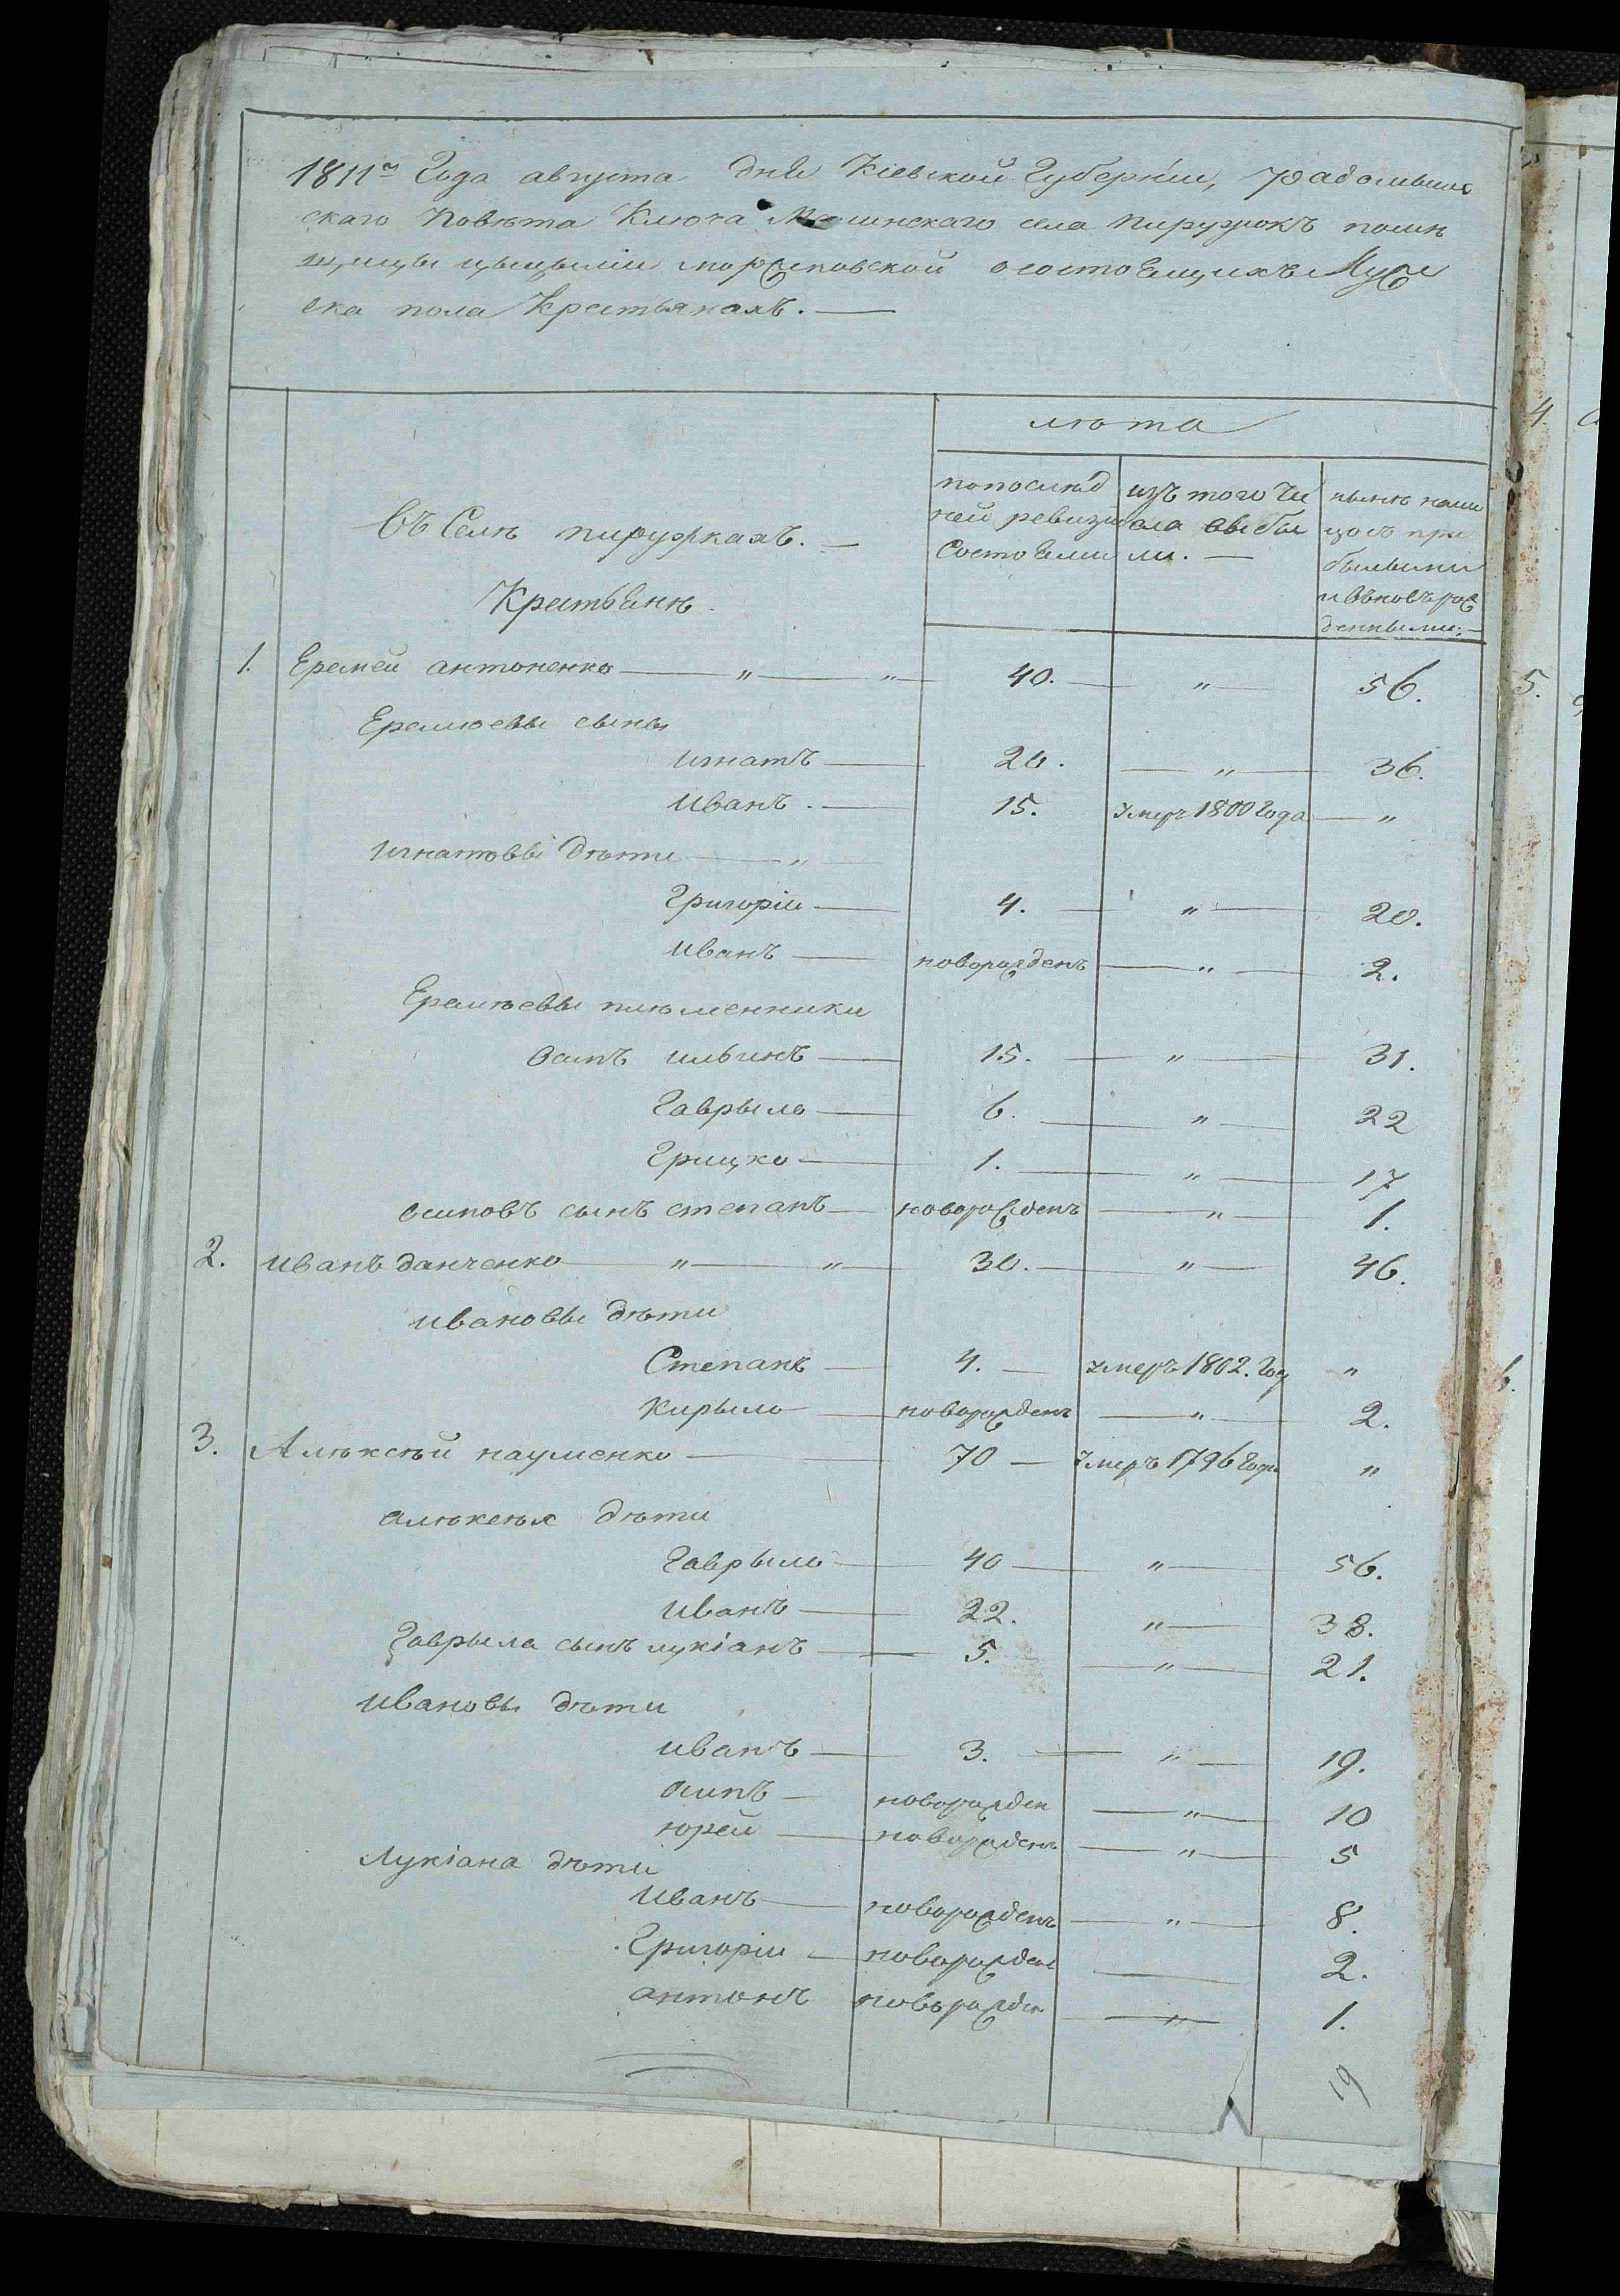 1811го Года августа дня Кіевской Губерніи, Радомышль
скаго Повѣта Ключа села Пиружокъ помѣ
щицы цыцыліи о состоЕщихъ Муже
ска пола Крестьянахъ. —
лѣта
въ Селѣ пиружкахъ. —
Крестьянѣ
по послѣд
ней ревизіи
СостоЕли
изъ того Чи
сла выбы
ли. —
нынѣ нали
цо съ при
былыми
и вновь рож
денными: —
1. Еремей антоненко — " — " — 40. — " — 56.
Еремѣевы сыны
игнатъ — 20. — " — 36.
Иванъ. — 15. Умеръ 1800 Года — "
игнатовы дѣти — "
Григоріи — 4. — " — 20.
иванъ — новорожденъ — " — 2.
Еремѣевы племенники
Осипъ ильинъ — 15. — " — 31.
Гаврыло — 6. — " — 22
Грицко — 1. — " — 17
осиповъ сынъ степанъ — новорожденъ — " — 1.
2. иванъ данченко — " — " — 30. — " — 46.
ивановы дѣти
Степанъ — 4. — умеръ 1802. Году "
Кирыло — новорожденъ — " — 2.
3. Алѣксѣй науменко — 70 — Умеръ 1796 Года "
алѣксѣя дѣти
Гаврыло — 40 — " — 56.
иванъ — 22. " — 38.
Гаврыла сынъ лукіанъ — 5. — " — 21.
ивановы дѣти
иванъ — 3. — " — 19.
осипъ — новорожден — " — 10
юрей — новорожденъ — " — 5
Лукіана дѣти
иванъ — новорожденъ — " — 8.
Григоріи — новорожден — 2.
антонъ новорожден — " — 1.
19
4.
5.
6.